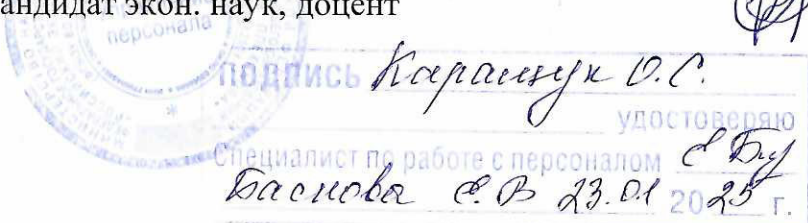 андидат экон. наук, доцент
персонала
ПОДПИСЬ Каращук О.С.
удостоверяю
Специалист по работе с персоналом
Баснова Е.В 23.01 2025 г.